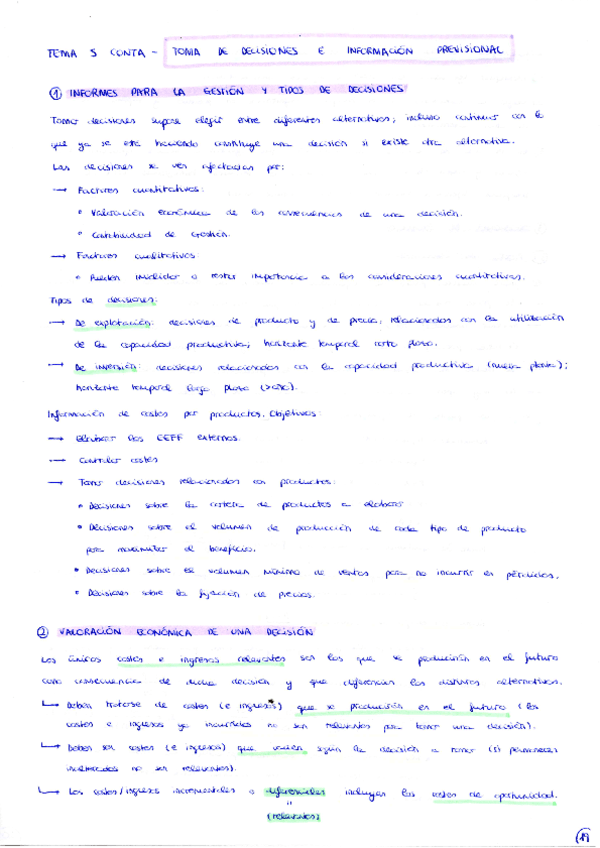 TEMA 5 CONTA - TOMA DE DECISIONES E INFORMACIÓN PREVISIONAL
① INFORMES PARA LA GESTIÓN Y TIPOS DE DECISIONES
Tomar decisiones supone elegir entre diferentes alternativas, incluso continuar con lo
que ya se está haciendo constituye una decisión si existe otra alternativa.
Las decisiones se ven afectadas por:
→ Factores cuantitativos:
• Valoración económica de las consecuencias de una decisión.
• Contabilidad de Gestión.
→ Factores cualitativos
• Pueden invalidar o restar importancia a las consideraciones cuantitativas.
Tipos de decisiones:
→ De explotación: decisiones de producto y de precio, relacionadas con la utilización
de la capacidad productiva; horizonte temporal corto plazo.
→ De inversión: decisiones relacionadas con la capacidad productiva (nueva planta);
horizonte temporal largo plazo (>año).
Información de costes por productos. Objetivos:
→ Elaborar los EEFF externos.
→ Controlar costes
→ Tomar decisiones relacionadas con productos:
• Decisiones sobre la cartera de productos a elaborar
• Decisiones sobre el volumen de producción de cada tipo de producto
para maximizar el beneficio.
• Decisiones sobre el volumen mínimo de ventas para no incurrir en pérdidas.
• Decisiones sobre la fijación de precios.
② VALORACIÓN ECONÓMICA DE UNA DECISIÓN
Los únicos costes e ingresos relevantes son los que se producirán en el futuro
como consecuencia de dicha decisión y que diferencian las distintas alternativas.
↳ Deben tratarse de costes (e ingresos) que se producirán en el futuro (los
costes e ingresos ya incurridos no son relevantes para tomar una decisión).
↳ Deben ser costes (e ingresos) que varíen según la decisión a tomar (si permanecen
inalterados no son relevantes).
↳ Los costes/ingresos incrementales o diferenciales incluyen los costes de oportunidad.
"
(relevantes)
19